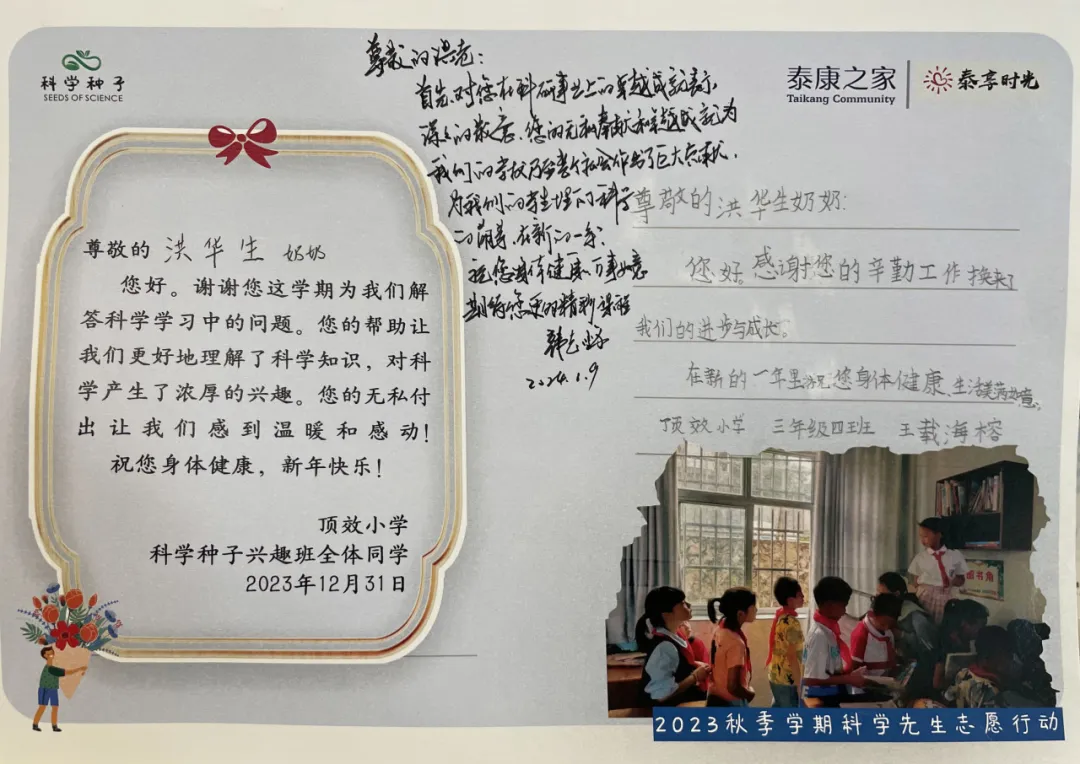 科学种子
SEEDS OF SCIENCE
尊敬的 洪华生 奶奶
您好。谢谢您这学期为我们解
答科学学习中的问题。您的帮助让
我们更好地理解了科学知识，对科
学产生了浓厚的兴趣。您的无私付
出让我们感到温暖和感动！
祝您身体健康，新年快乐！
顶效小学
科学种子兴趣班全体同学
2023年12月31日
尊敬的洪老：
首先，对您在科研事业上的卓越成就表示
深深的敬意。您的无私奉献和卓越成就为
我们的学校乃至整个社会作出了巨大贡献，
为我们的学生埋下科学
的萌芽，在新的一年，
祝您身体健康、万事如意
期待您更的精彩课程
2024.1.9
泰康之家
Taikang Community
泰享时光
尊敬的洪华生奶奶：
您好。感谢您的辛勤工作换来了
我们的进步与成长。
在新的一年里祝您身体健康、生活美满如意。
顶效小学 三年级四班 王载海榕
图书角
2023秋季学期科学先生志愿行动